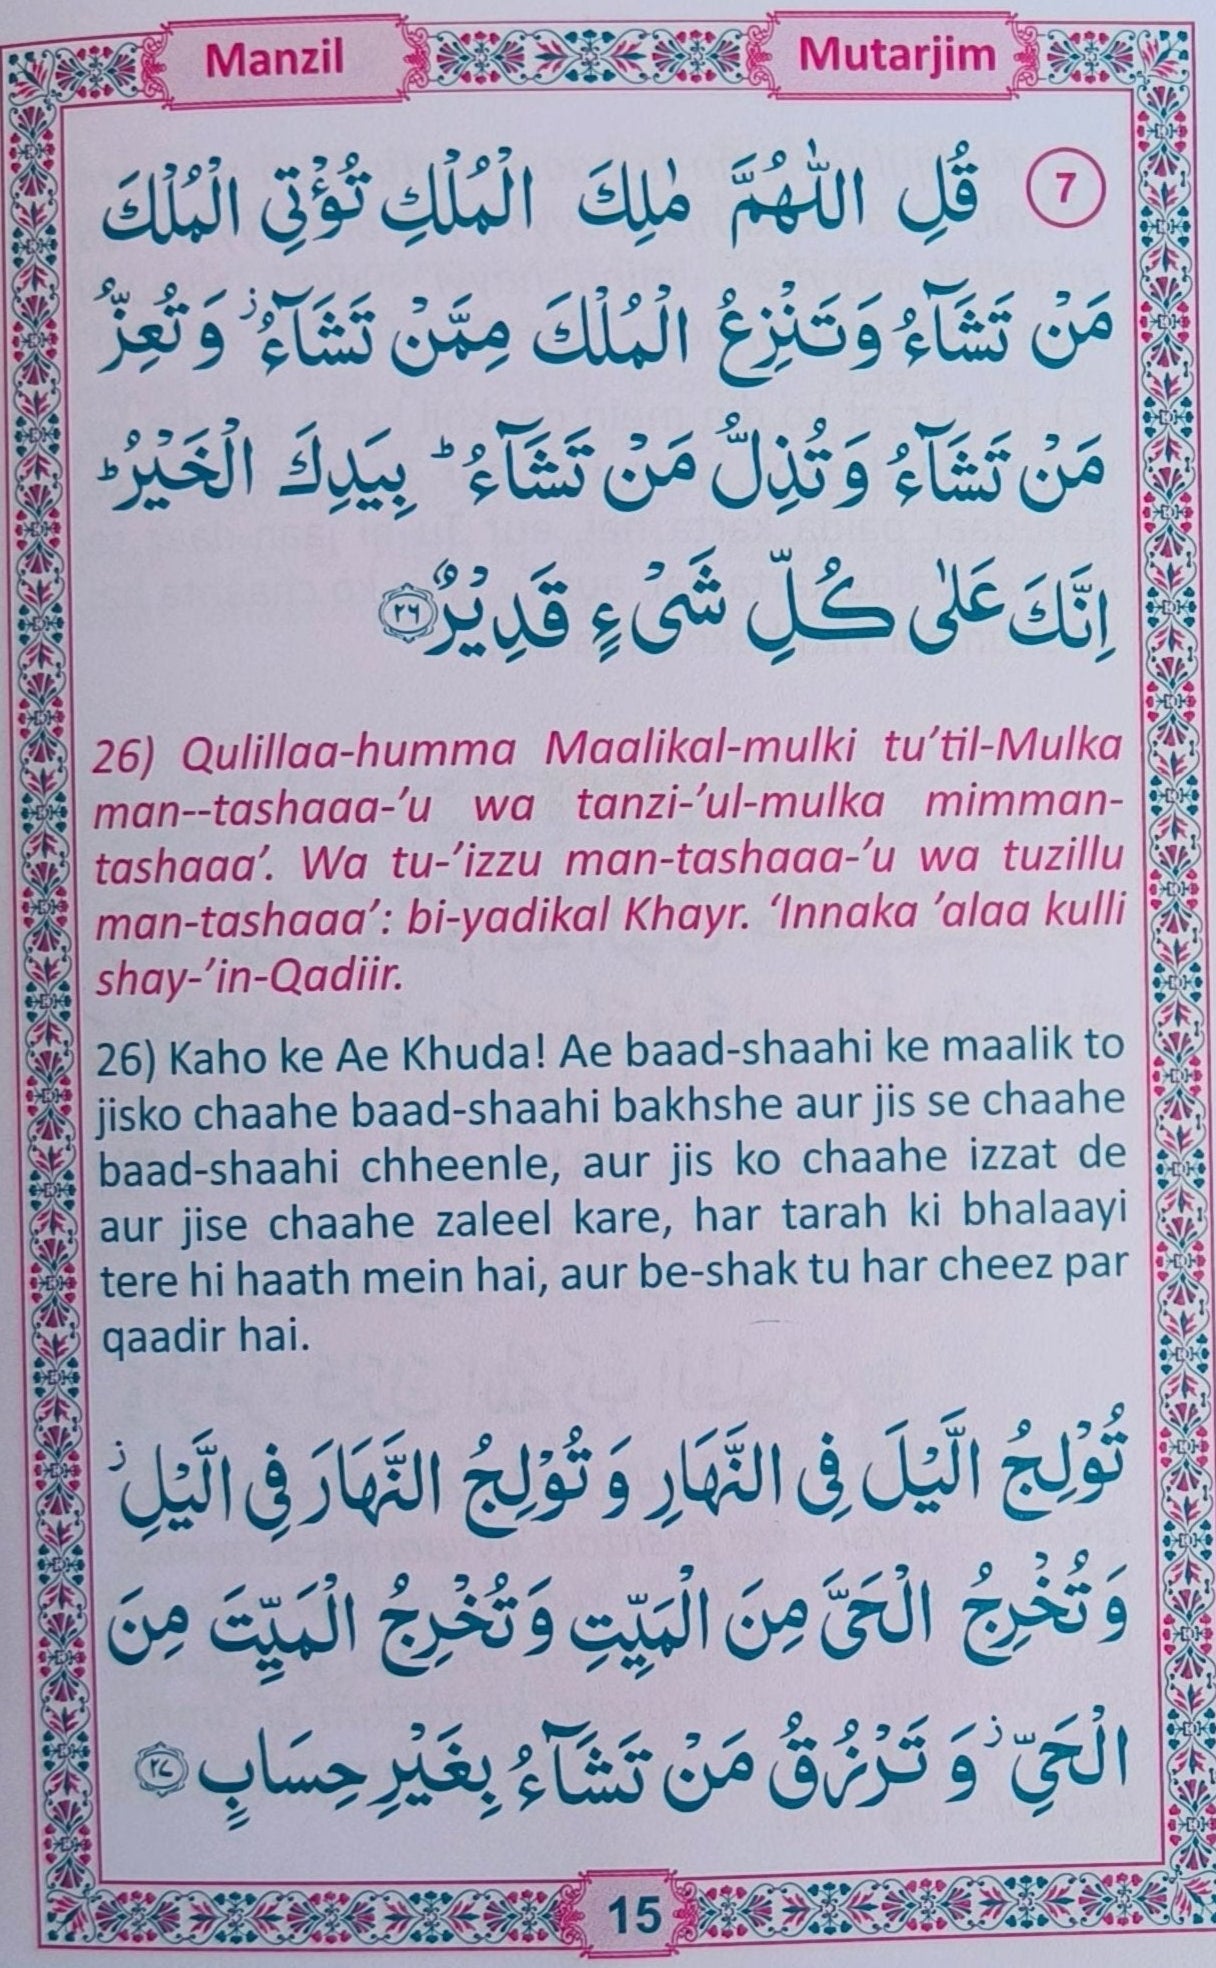 Manzil
Mutarjim
7
قُلِ اللّٰهُمَّ مٰلِكَ الْمُلْكِ تُؤْتِي الْمُلْكَ
مَنْ تَشَآءُ وَتَنْزِعُ الْمُلْكَ مِمَّنْ تَشَآءُ ۫ وَتُعِزُّ
مَنْ تَشَآءُ وَتُذِلُّ مَنْ تَشَآءُ ؕ بِيَدِكَ الْخَيْرُ ؕ
اِنَّكَ عَلٰى كُلِّ شَیْءٍ قَدِيْرٌ ۟۲۶
26) Qulillaa-humma Maalikal-mulki tu’til-Mulka
man--tashaaa-’u wa tanzi-’ul-mulka mimman-
tashaaa’. Wa tu-’izzu man-tashaaa-’u wa tuzillu
man-tashaaa’: bi-yadikal Khayr. ‘Innaka ’alaa kulli
shay-’in-Qadiir.
26) Kaho ke Ae Khuda! Ae baad-shaahi ke maalik to
jisko chaahe baad-shaahi bakhshe aur jis se chaahe
baad-shaahi chheenle, aur jis ko chaahe izzat de
aur jise chaahe zaleel kare, har tarah ki bhalaayi
tere hi haath mein hai, aur be-shak tu har cheez par
qaadir hai.
تُوْلِجُ الَّيْلَ فِی النَّهَارِ وَتُوْلِجُ النَّهَارَ فِی الَّيْلِ ۫
وَتُخْرِجُ الْحَیَّ مِنَ الْمَيِّتِ وَتُخْرِجُ الْمَيِّتَ مِنَ
الْحَیِّ ۫ وَتَرْزُقُ مَنْ تَشَآءُ بِغَيْرِ حِسَابٍ ۟۲۷
15